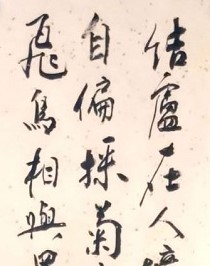 結廬在人境
自偏採菊
飛鳥相與還